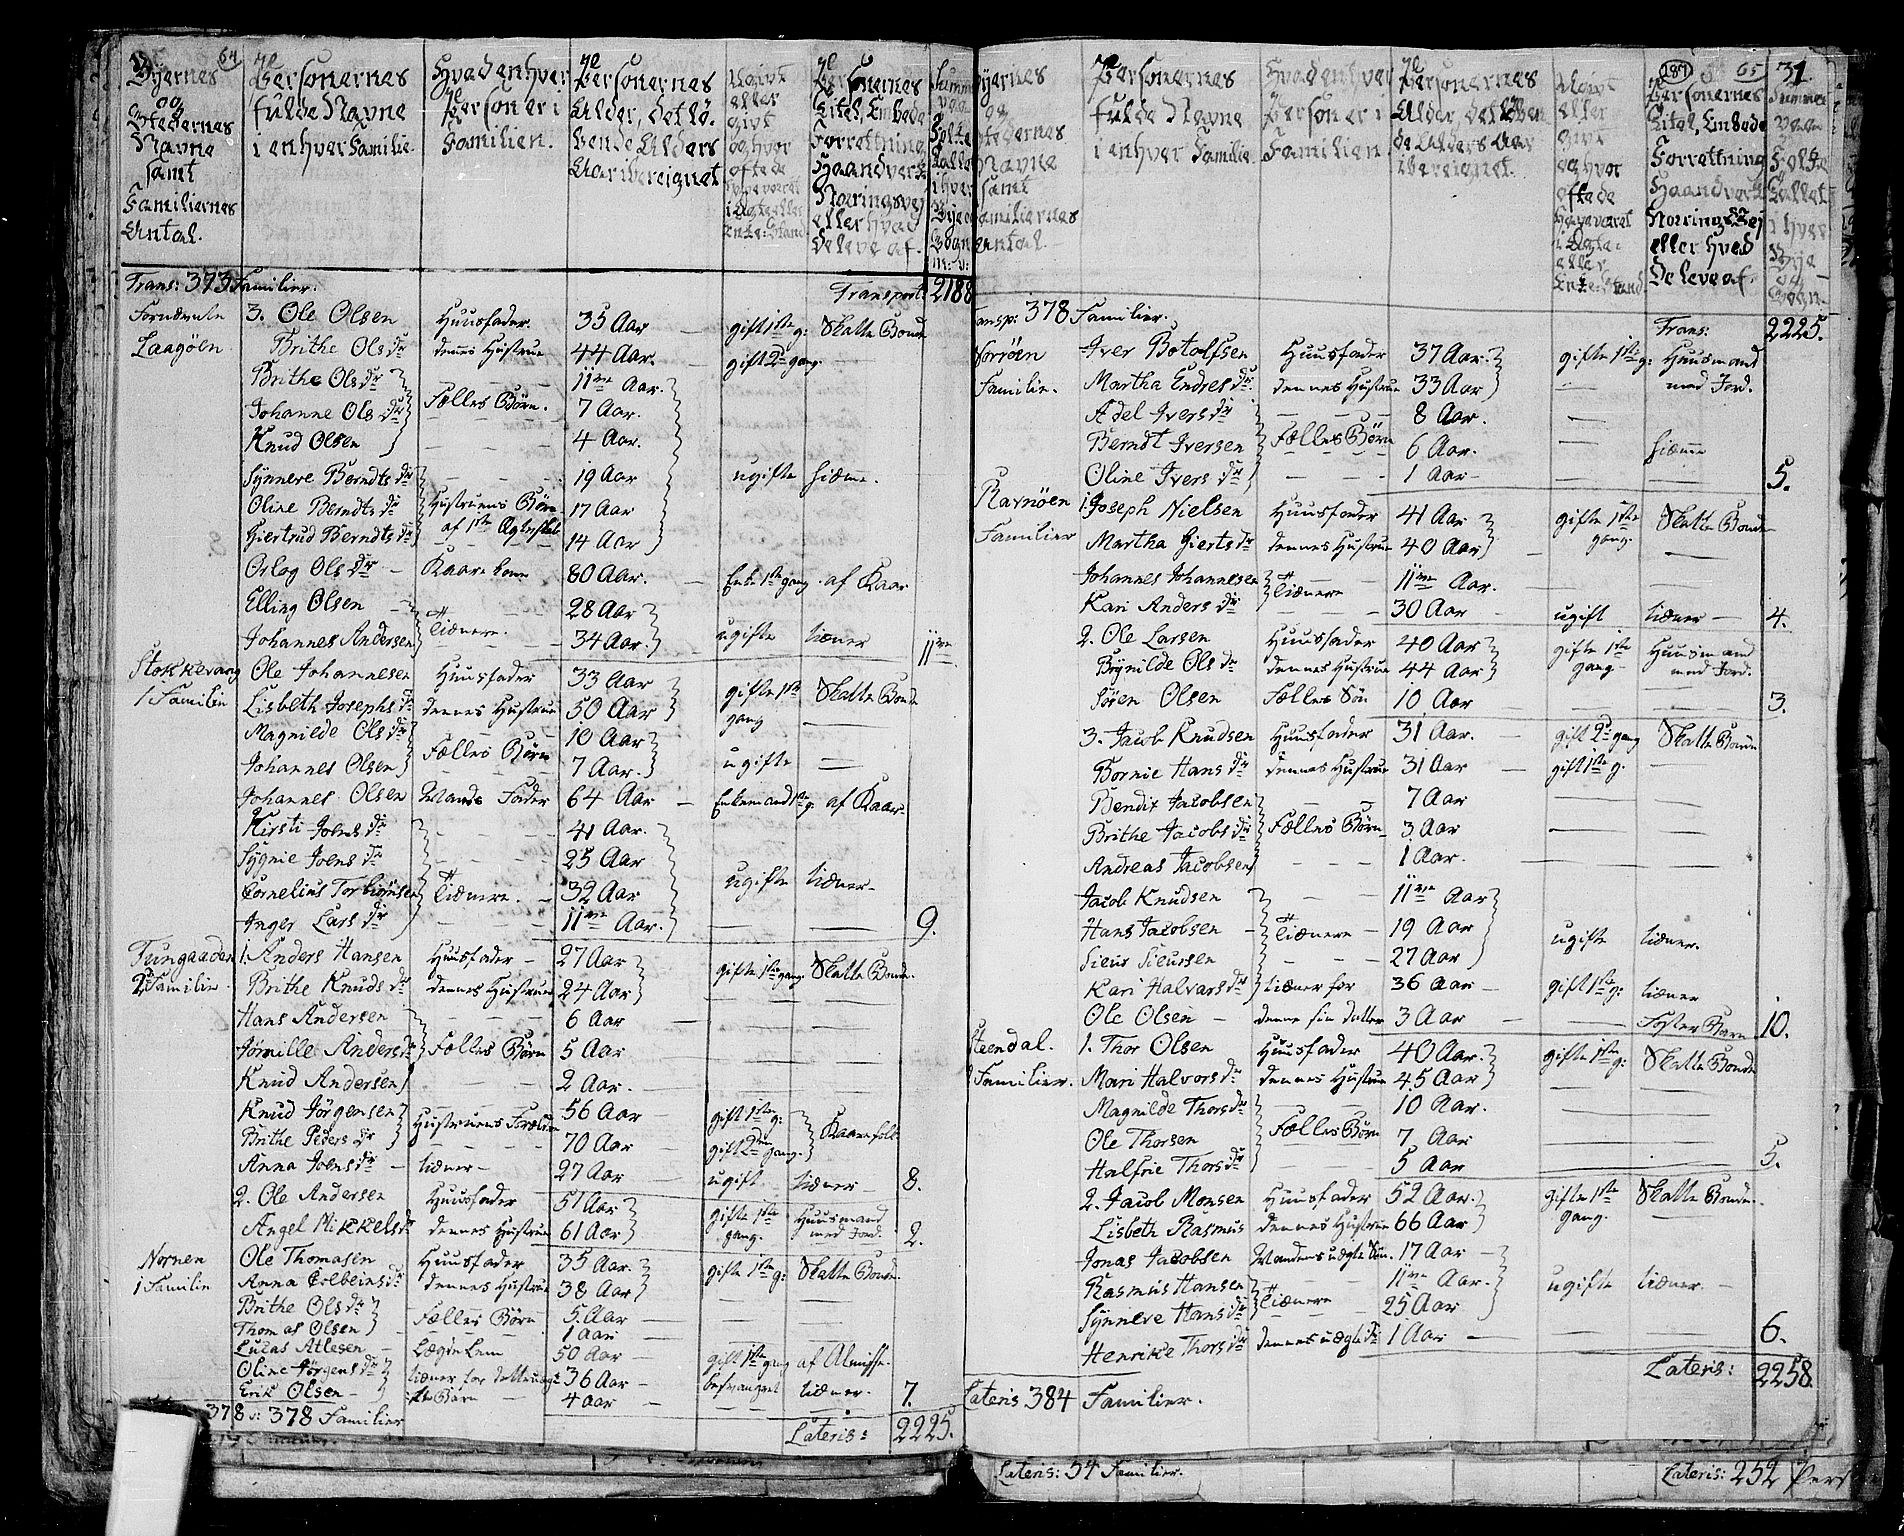 64
Byernes og Stedernes Navne samt Familiernes Antal.
Personernes fulde Navne i enhver Familie.
Hvad enhver Person er i Familien.
Personernes Alder, det løbende Alders Aar iberegnet
Ugivt eller givt og hvor ofte de have været i Ægte eller Enke-Stand.
Personernes Titel, Embede Forrettning Haandverk Næringsvej eller hvad De leve af.
Trans: 373 Familier. Transport: 2188
Laagöen 3. Ole Olsen Huusfader. 35 Aar gift 1ste g: Skatte Bonde
Brithe Ols dr dennes Hustrue 44 Aar. gift 2den gang.
Brithe Ols dr 11ve Aar.
Johanne Ols dr Fælles Børn. 7 Aar.
Knud Olsen 4 Aar.
Synneve Berndts dr 19 Aar ugifte hiemme.
Oline Berndts dr Hustruens Børn 17 Aar
Giertrud Berndts dr af 1ste Ægteskab 14 Aar
Orlog Ols dr Kaare kone 80 Aar. Enke 1ste gang af Kaar
Elling Olsen 28 Aar
Johannes Andersen Tiænere. 34 Aar. ugifte tiæner 11ve
Stokkevaag Ole Johannesen Huusfader 33 Aar gifte 1ste gang Skatte Bonde
1 Familie Lisbeth Josephs dr dennes Hustrue 50 Aar
Magnilde Ols dr 10 Aar
Johannes Olsen Fælles Børn 7 Aar. ugifte
Johannes Olsen Mands Fader 64 Aar Enkemand 1ste g: af Kaar
Kirsti Johns dr 41 Aar.
Sygnie Johns dr 25 Aar
Cornelius Torbiørnsen Tiænere. 32 Aar ugifte tiæner
Inger Lars dr 11ve Aar. 9.
Tungaaden 1. Anders Hansen Huusfader 27 Aar gifte 1ste gang. Skatte Bonde.
2de Familier Brithe Knuds dr dennes Hustrue 24 Aar
Hans Andersen 6 Aar
Jörnille Anders dr Fælles Børn 5 Aar
Knud Andersen 2 Aar.
Knud Jörgensen Hustruens Forældre 56 Aar gift 1ste g: Kaarefolk
Brithe Peders dr 70 Aar gift 2den gang.
Anna Johns dr tiæner 27 Aar ugift tiæner 8.
2. Ole Andersen Huusfader 51 Aar gifte 1ste gang. Huusmand med Jord.
Angel Mikkels dr dennes Hustrue 61 Aar 2.
Nornen Ole Thomasen Huusfader 35 Aar. gifte 1ste g: Skatte Bonde
1 Familie Anna Colbeins dr dennes Hustrue 38 Aar
Brithe Ols dr Fælles Børn 5. Aar
Thomas Olsen 1 aar
Lucas Atlesen Lægds Lem 50 Aar gift 1ste gang af Almisse.
Oline Jörgens dr 36 Aar besvangret tiæner.
Erik Olsen 4 aar 7.
378 s: 378 Familier Lateris: 2225.
187 65 31
Byernes og Stedernes Navne samt Familiernes Antal.
Personernes fulde Navne i enhver Familie.
Hvad enhver Person er i Familien
Personernes Alder, det løbende Alders Aar iberegnet.
Ugivt eller givt og hvor ofte de have været i Ægte eller Enke Stand
Personernes Titel, Embede Forrettning Haandverk Nærings Vej eller hved De leve af.
Transp: 378 Familier. Trans: 2225.
Norröen Iver Botolfsen Huusfader 37 Aar. gifte 1ste g: Huusmand med Jord.
Familie. Martha Endres dr dennes Hustrue 33 Aar
Adel Ivers dr 8 Aar.
Berndt Iversen Fælles Børn 6 Aar. hiemme
Oline Ivers dr 1 Aar 5.
Ravnöen 1. Joseph Nielsen Huusfader 41 Aar gifte 1ste gang. Skatte Bonde
Familier Martha Gierts dr dennes Hustrue 40 Aar
Johannes Johannesen Tiænere 11ve Aar.
Kari Anders dr 30 Aar ugift tiæner 4.
2. Ole Larsen Huusfader 40 Aar gifte 1ste gang Huusmand med Jord.
Bognilde Ols dr dennes Hustrue 44 Aar
Sören Olsen Fælles Sön 10 Aar 3.
3. Jacob Knudsen Huusfader 31 Aar. gift 2den gang Skatte Bonde
Bornie Hans dr dennes Hustrue 31 Aar gift 1ste g.
Bendix Jacobsen 7 Aar
Brithe Jacobs dr Fælles Børn 3 Aar
Andreas Jacobsen 1 Aar.
Jacob Knudsen 11ve Aar
Hans Jacobsen Tiænere 19 Aar ugifte tiæner.
Sieur Sieursen 27 Aar
Kari Halvors dr tiæner for 36 Aar gift 1ste g: tiæner
Ole Olsen denne sin datter 3 Aar Foster Barn 10.
Steendal. 1. Thor Olsen Huusfader 40 Aar. gifte 1ste g: Skatte Bonde
Familier. Mari Halvors dr dennes Hustrue 45 Aar
Magnilde Thors dr 10 Aar.
Ole Thorsen Fælles Børn 7 Aar
Halfrie Thors dr 5 Aar 5.
2. Jacob Monsen Huusfader 52 Aar. gifte 1ste gang. Skatte Bonde
Lisbeth Rasmus dennes Hustrue 66 Aar
Jonas Jacobsen Mandens uægte Sön. 17 Aar
Rasmus Hansen 11ve Aar. ugifte tiæner
Synneve Hans dr Tiænere 25 Aar
Henrike Thors dr dennes uægte dr 1 Aar 6.
Lateris: 2258
Lateris 384 Familier.
Lateris: 54 Familier. Lateris: 252 Pers